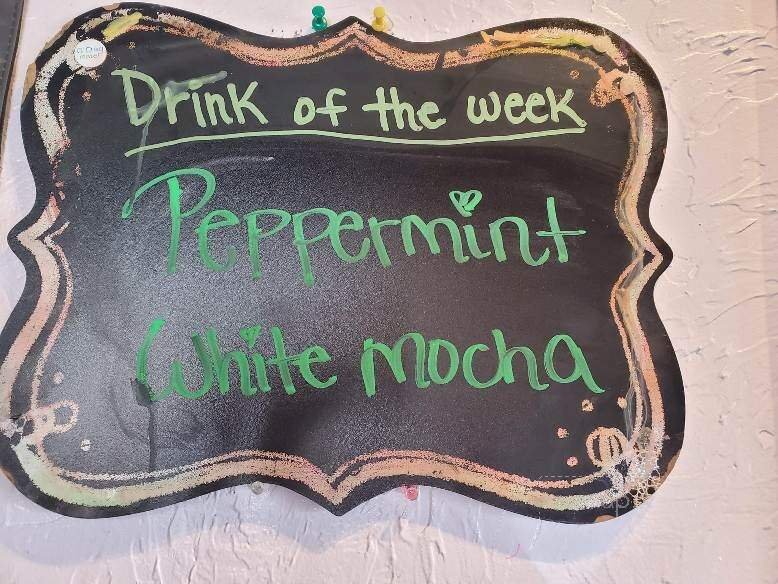 Drink of the week
Peppermint
White mocha